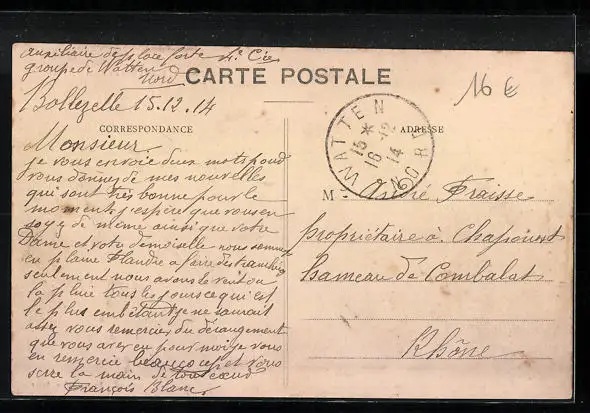 Auxiliaire de place forte 4e Cie
groupe de Watten
Nord
CARTE POSTALE
16 €
Bollezelle 15.12.14
CORRESPONDANCE
ADRESSE
WATTEN
15 *
16 - 12
14
NORD
Monsieur
je vous envoie deux mots pour
vous donner de mes nouvelles
qui sont très bonne pour le
moment j'espère que vous en
soyez de même ainsi que votre
Dame et votre demoiselle nous sommes
en plaine Flandre a faire des tranchées
seulement nous avons le vent ou
la pluie tous les jours ce qui est
le plus embêtant je ne saurait
assez vous remercier du dérangement
que vous avez eu pour moi je vous
en remercie beaucoup et vous
serre la main de tout cœur
François Blanc
M. André Fraisse
propriétaire à Chaponost
hameau de Combalat
Rhône